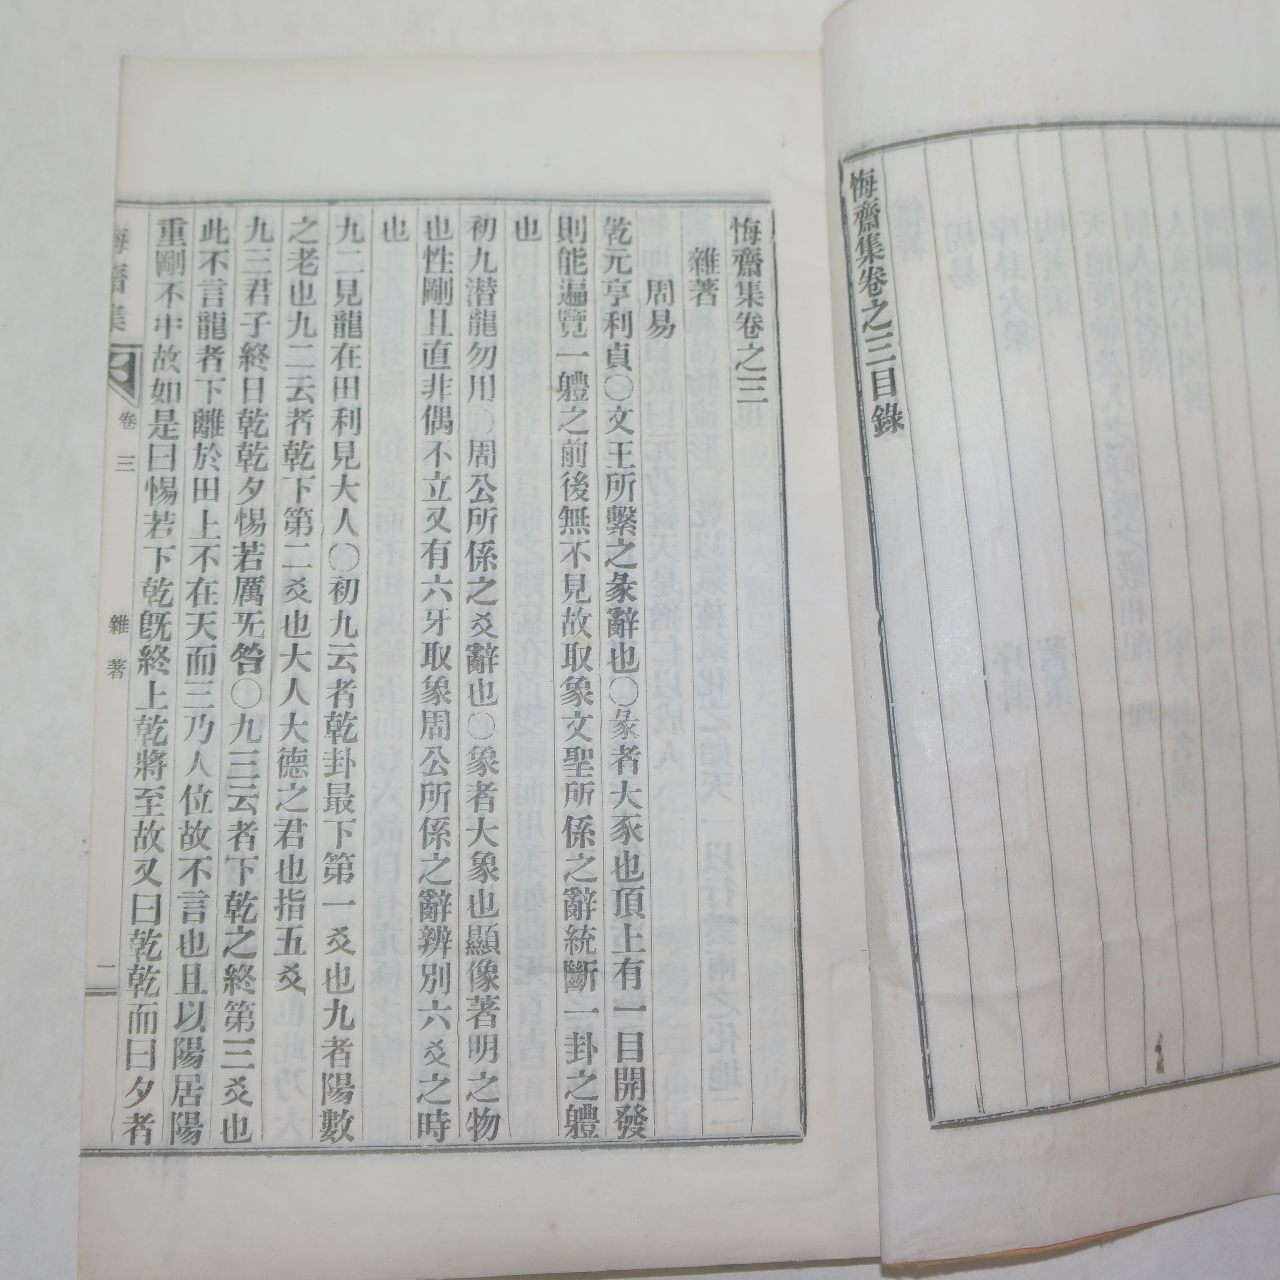 悔齋集卷之三目錄
悔齋集卷之三
雜著
周易
乾元亨利貞○文王所繫之彖辭也○彖者大豕也頂上有一目開發
則能遍覽一軆之前後無不見故取象文聖所係之辭統斷一卦之軆
也
初九潜龍勿用○周公所係之爻辭也○象者大象也顯像著明之物
也性剛且直非偶不立又有六牙取象周公所係之辭辨別六爻之時
也
九二見龍在田利見大人○初九云者乾卦最下第一爻也九者陽數
之老也九二云者乾下第二爻也大人大德之君也指五爻
九三君子終日乾乾夕惕若厲旡咎○九三云者下乾之終第三爻也
此不言龍者下離於田上不在天而三乃人位故不言也且以陽居陽
重剛不中故如是曰惕若下乾旣終上乾將至故又曰乾乾而曰夕者
悔齋集
卷三
雜著
二